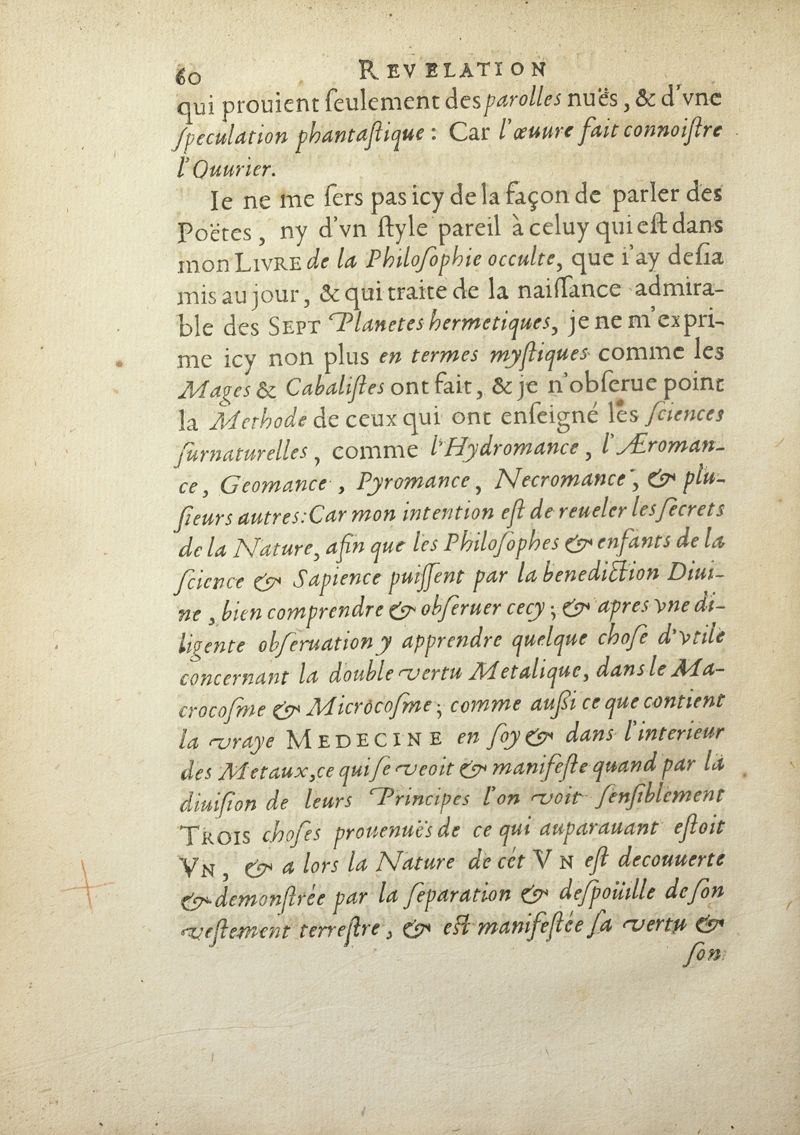 60 REVELATION
qui prouient ſeulement des parolles nuës, & d'vne
ſpeculation phantaſtique : Car l'œuure fait connoiſtre
l'Ouurier.
Ie ne me ſers pas icy de la façon de parler des
Poëtes, ny d'vn ſtyle pareil à celuy qui eſt dans
mon LIVRE de la Philoſophie occulte, que i'ay deſia
mis au jour, & qui traite de la naiſſance admira-
ble des SEPT Planetes hermetiques, je ne m'expri-
me icy non plus en termes myſtiques comme les
Mages & Cabaliſtes ont fait, & je n'obſerue point
la Methode de ceux qui ont enſeigné les ſciences
ſurnaturelles, comme l'Hydromance, l'Æroman-
ce, Geomance, Pyromance, Necromance, & plu-
ſieurs autres: Car mon intention eſt de reueler les ſecrets
de la Nature, afin que les Philoſophes & enfants de la
ſcience & Sapience puiſſent par la benediction Diui-
ne, bien comprendre & obſeruer cecy ; & apres vne di-
ligente obſeruation y apprendre quelque choſe d'vtile
concernant la double vertu Metalique, dans le Ma-
crocoſme & Microcoſme ; comme auſſi ce que contient
la vraye MEDECINE en ſoy & dans l'interieur
des Metaux, ce qui ſe veoit & manifeſte quand par la
diuiſion de leurs Principes l'on voit ſenſiblement
TROIS choſes prouenuës de ce qui auparauant eſtoit
VN, & a lors la Nature de cét VN eſt decouuerte
& demonſtrée par la ſeparation & deſpoüille de ſon
veſtement terreſtre, & eſt manifeſtée ſa vertu &
ſon